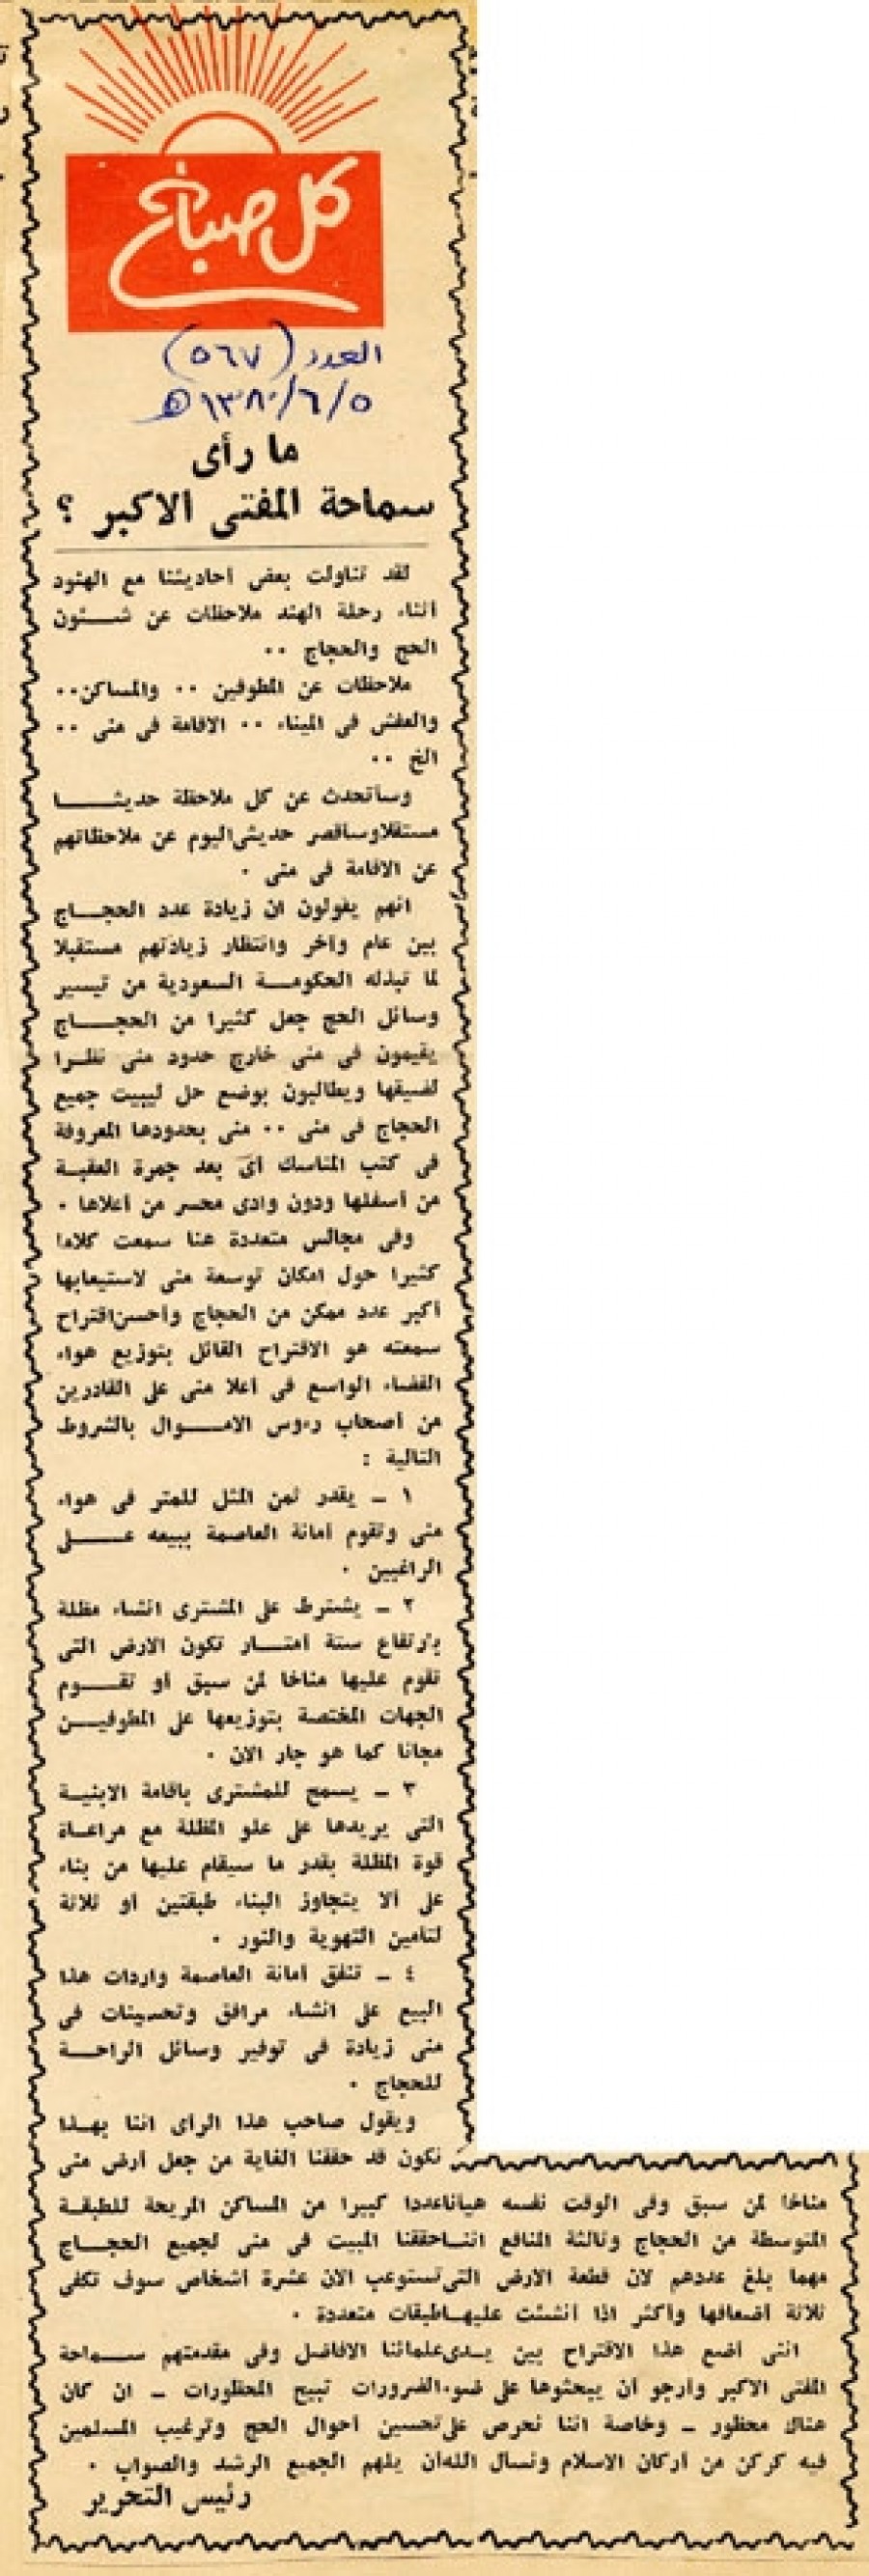 كل صباح
العدد (٥٦٧)
٥/٦/١٣٨٠هـ
ما رأى
سماحة المفتى الاكبر ؟
لقد تناولت بعض أحاديثنا مع الهنود
أثناء رحلة الهند ملاحظات عن شئون
الحج والحجاج ..
ملاحظات عن المطوفين .. والمساكن..
والعفش فى الميناء .. الاقامة فى منى ..
الخ ..
وسأتحدث عن كل ملاحظة حديثا
مستقلا وسأقصر حديثى اليوم عن ملاحظاتهم
عن الاقامة فى منى .
انهم يقولون ان زيادة عدد الحجاج
بين عام وآخر وانتظار زيادتهم مستقبلا
لما تبذله الحكومة السعودية من تيسير
وسائل الحج جعل كثيرا من الحجاج
يقيمون فى منى خارج حدود منى نظرا
لضيقها ويطالبون بوضع حل ليبيت جميع
الحجاج فى منى .. منى بحدودها المعروفة
فى كتب المناسك أى بعد جمرة العقبة
من أسفلها ودون وادى محسر من أعلاها .
وفى مجالس متعددة هنا سمعت كلاما
كثيرا حول امكان توسعة منى لاستيعابها
أكبر عدد ممكن من الحجاج وأحسن اقتراح
سمعته هو الاقتراح القائل بتوزيع هواء
الفضاء الواسع فى أعلا منى على القادرين
من أصحاب رءوس الاموال بالشروط
التالية :
١ ـ يقدر ثمن المثل للمتر فى هواء
منى وتقوم أمانة العاصمة ببيعه على
الراغبين .
٢ ـ يشترط على المشترى انشاء مظلة
بارتفاع ستة أمتار تكون الارض التى
تقوم عليها مناخا لمن سبق أو تقوم
الجهات المختصة بتوزيعها على المطوفين
مجانا كما هو جار الان .
٣ ـ يسمح للمشترى باقامة الابنية
التى يريدها على علو المظلة مع مراعاة
قوة المظلة بقدر ما سيقام عليها من بناء
على ألا يتجاوز البناء طبقتين أو ثلاثة
لتأمين التهوية والنور .
٤ ـ تنفق أمانة العاصمة واردات هذا
البيع على انشاء مرافق وتحسينات فى
منى زيادة فى توفير وسائل الراحة
للحجاج .
ويقول صاحب هذا الرأى اننا بهذا
نكون قد حققنا الغاية من جعل أرض منى
مناخا لمن سبق وفى الوقت نفسه هيأنا عددا كبيرا من المساكن المريحة للطبقة
المتوسطة من الحجاج وثالثة المنافع اننا حققنا المبيت فى منى لجميع الحجاج
مهما بلغ عددهم لان قطعة الارض التى تستوعب الان عشرة أشخاص سوف تكفى
ثلاثة أضعافها وأكثر اذا أنشئت عليها طبقات متعددة .
اننى أضع هذا الاقتراح بين يدى علمائنا الافاضل وفى مقدمتهم سماحة
المفتى الاكبر وأرجو أن يبحثوها على ضوء الضرورات تبيح المحظورات ـ ان كان
هناك محظور ـ وخاصة اننا نحرص على تحسين أحوال الحج وترغيب المسلمين
فيه كركن من أركان الاسلام ونسأل الله أن يلهم الجميع الرشد والصواب .
رئيس التحرير